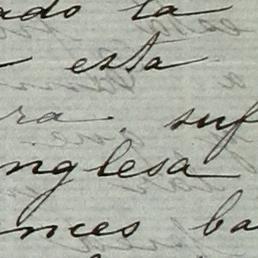 ado la
esta
ra suf
nglesa
nces ba